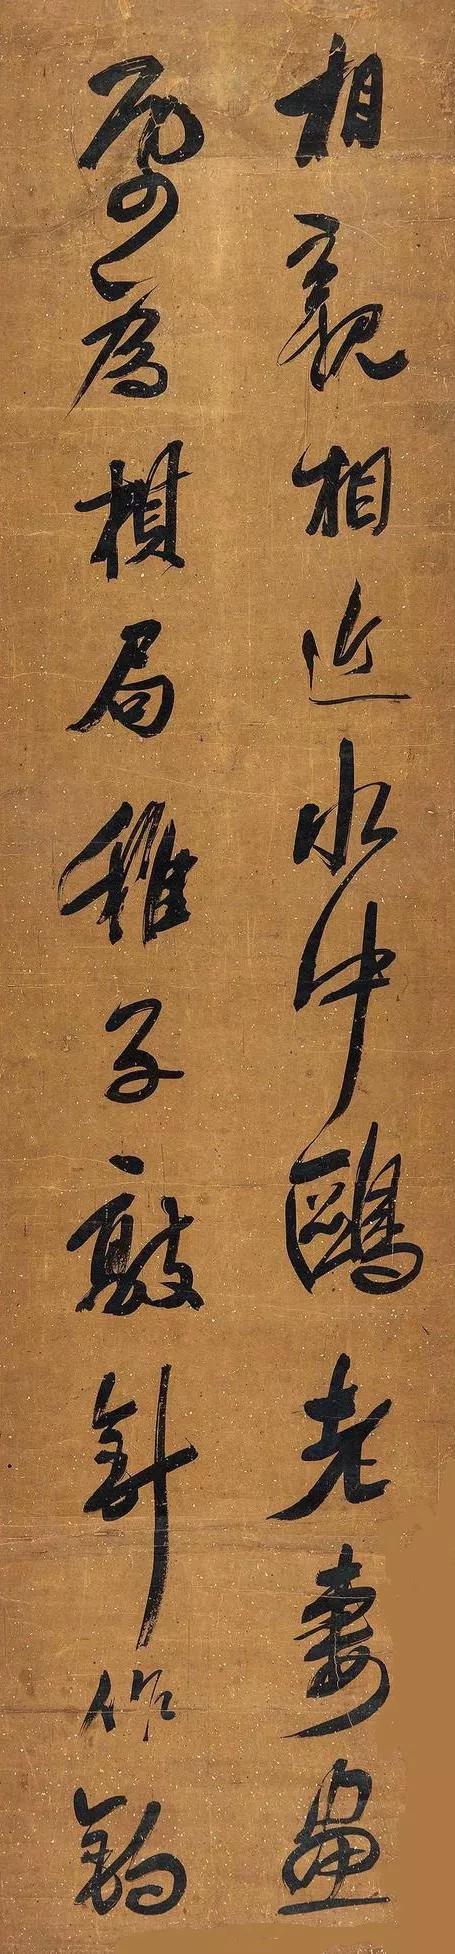 相親相近水中鷗老妻畫
為棋局稚子敲針作鈎